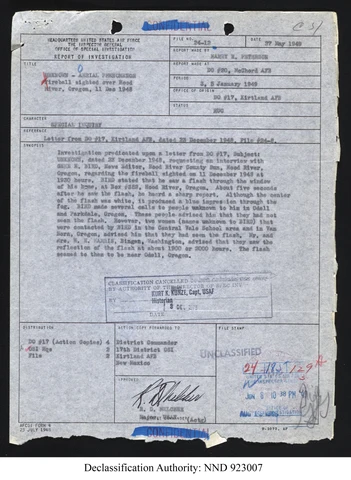 CONFIDENTIAL
HEADQUARTERS UNITED STATES AIR FORCE
THE INSPECTOR GENERAL
OFFICE OF SPECIAL INVESTIGATION
REPORT OF INVESTIGATION
FILE NO.
24-13
DATE
27 May 1949
TITLE
UNKNOWN - AERIAL PHENOMENON
Fireball sighted over Hood
River, Oregon, 11 Dec 1948
REPORT MADE BY
HARRY R. PETERSON
REPORT MADE AT
DO #20, McChord AFB
PERIOD
January 1949
OFFICE OF ORIGIN
DO #17, Kirtland AFB
STATUS
RUC
CHARACTER
SPECIAL INQUIRY
REFERENCE
Letter from DO #17, Kirtland AFB, dated 23 December 1948, File
SYNOPSIS
Investigation predicated upon a letter from DO #17, Subject:
UNKNOWN, dated 23 December 1948, requesting an interview with
BIKE, News Editor, Hood River County Sun, Hood River,
Oregon, regarding the fireball sighted on 11 December 1948 at
1900 hours. BIKE stated that he saw a flash through the window
of his home, at Hood River, Oregon. About five seconds
after he saw the flash, he heard a sharp report. Although the center
of the flash was white, it produced a blue impression through the
fog. BIKE made several calls to people unknown to him in Odell
and Parkdale, Oregon. These people advised him that they had not
seen the flash. However, two women (names unknown to BIKE) that
were contacted by BIKE in the Central Vale School area and in Van
Horn, Oregon, advised him that they had seen the flash. Mr. and
Mrs. HARRIS, Bingen, Washington, advised that they saw the
reflection of the flash at about 1900 or 2000 hours. The flash
seemed to them to be near Odell, Oregon.
CLASSIFICATION CANCELLED
BY AUTHORITY OF THE DIRECTOR OF
KURT K. KUNZE, Capt, USAF
Historian
DATE
DISTRIBUTION
DO #17 (Action Copies) 4
OSI Hqs
File 2
ACTION COPY FORWARDED TO
District Commander
17th District OSI
Kirtland AFB
New Mexico
FILE STAMP
UNCLASSIFIED
APPROVED
(Actg)
AFCSI FORM 4
23 JULY 1948
CONFIDENTIAL
Declassification Authority: NND 923007